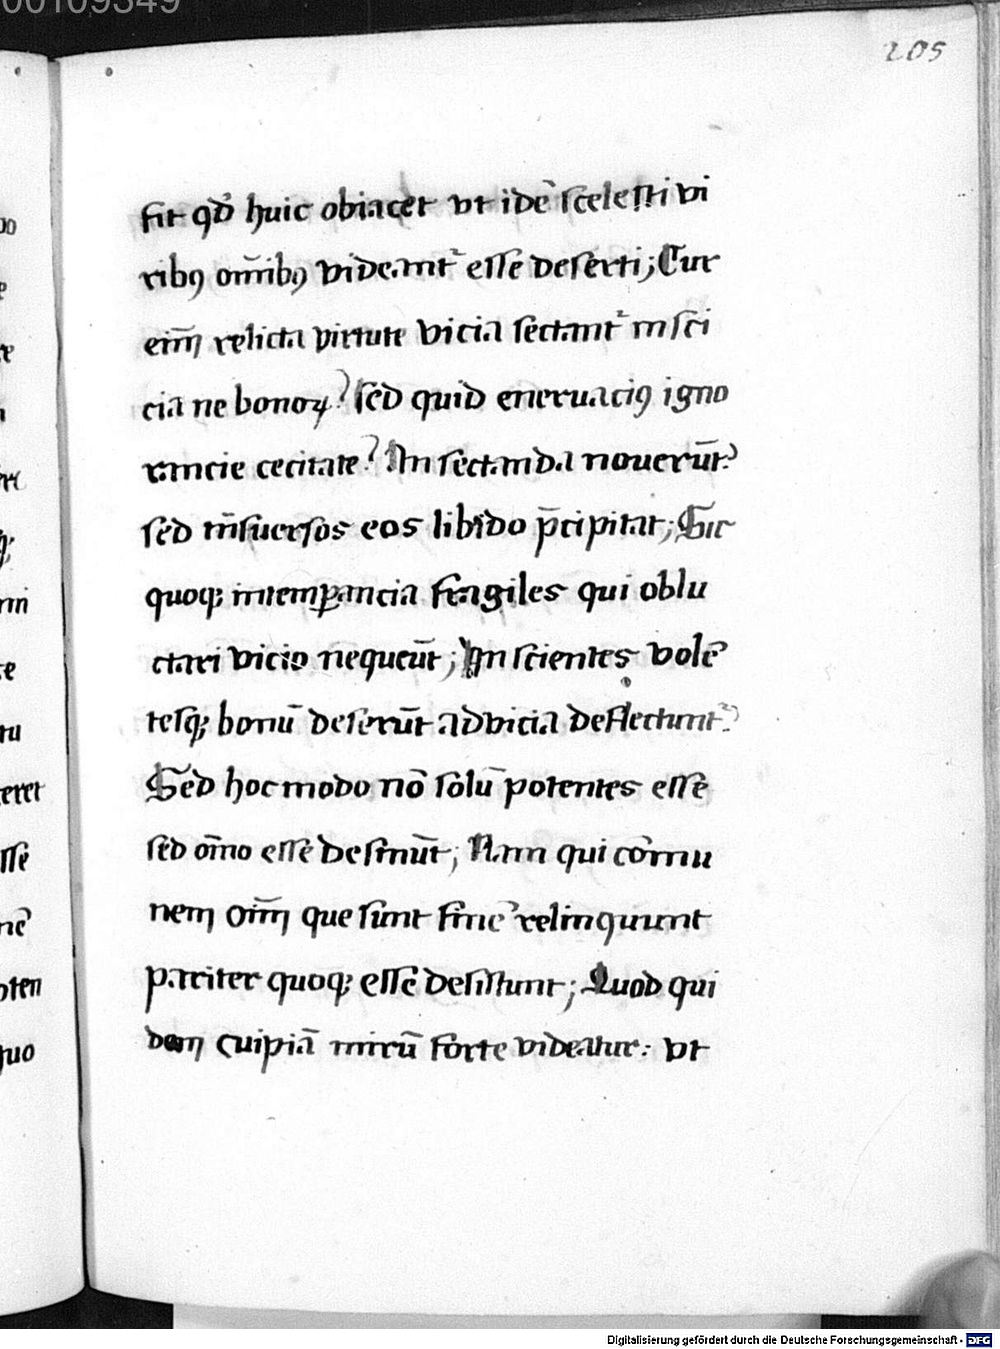 00109349
205
sit qđ huic obiacet vt idē scelesti vi
ribꝯ om̄ibꝯ videantᷣ esse deserti; Cur
eim̄ relicta virtute vicia sectantᷣ insci
cia ne bonoꝝ? sed quid eneruaciꝯ igno
rancie cecitate? An sectanda nouerūt?
sed trāsuersos eos libido p̄cipitat; Sic
quoqꝫ intemꝑancia fragiles qui oblu
ctari vicio nequeūt; An scientes volē
tesqꝫ bonū deserūt ad vicia deflectunt?
Sed hoc modo nō solū potentes esse
sed om̄o esse desinūt; Nam qui cōmu
nem oim̄ que sunt finē relinquunt
pariter quoqꝫ esse desistunt; Quod qui
dem cuipiā mirū forte videatur: vt
Digitalisierung gefördert durch die Deutsche Forschungsgemeinschaft - DFG